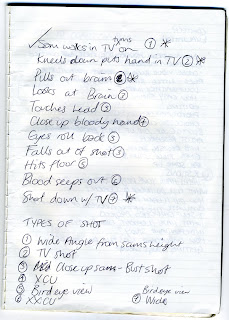 ✓ Sam walks in TV on turns ① *
Kneels down puts hand in TV ② *
Pulls out brain ② *
Looks at Brain ③
Touches head ③
Close up bloody hand ④
Eyes roll back ③
Falls out of shot ③
Hits floor ⑤
Blood seeps out ⑥
Shot down w/ TV ⑦ *
TYPES OF SHOT
① Wide Angle from sams height
② TV shot
③ Close up sams - Bust shot
④ XCU
⑤ Birdeye view
⑥ XXCU
Birdeye view
⑦ Wide